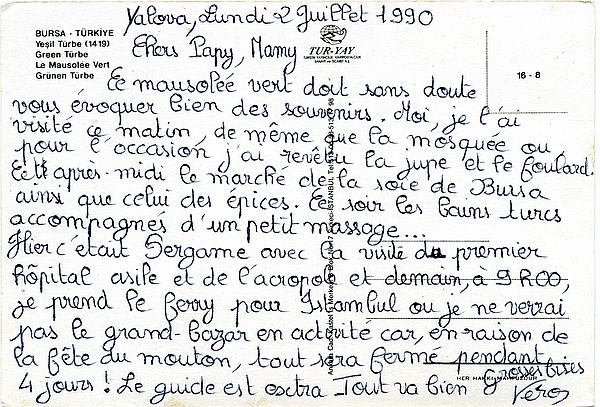 Yalova, Lundi 2 Juillet 1990
BURSA - TÜRKİYE
Yeşil Türbe (1419)
Green Türbe
Le Mausolée Vert
Grünen Türbe
Chers Papy, Mamy
TUR-YAY
16 - 8
Ce mausolée vert doit sans doute
vous évoquer bien des souvenirs. Moi, je l'ai
visité ce matin, de même que la mosquée ou
pour l'occasion j'ai revêtu la jupe et le foulard.
Cet après-midi le marché de la soie de Bursa
ainsi que celui des épices. Ce soir les bains turcs
accompagnés d'un petit massage...
Hier c'était Pergame avec la visite du premier
hôpital asile et de l'acropole et demain, à 9 h 00,
je prend le ferry pour Istambul ou je ne verrai
pas le grand-bazar en activité car, en raison de
la fête du mouton, tout sera fermé pendant
4 jours ! Le guide est extra Tout va bien
grosses bises
Véro
HER HAKKI MAHFUZDUR